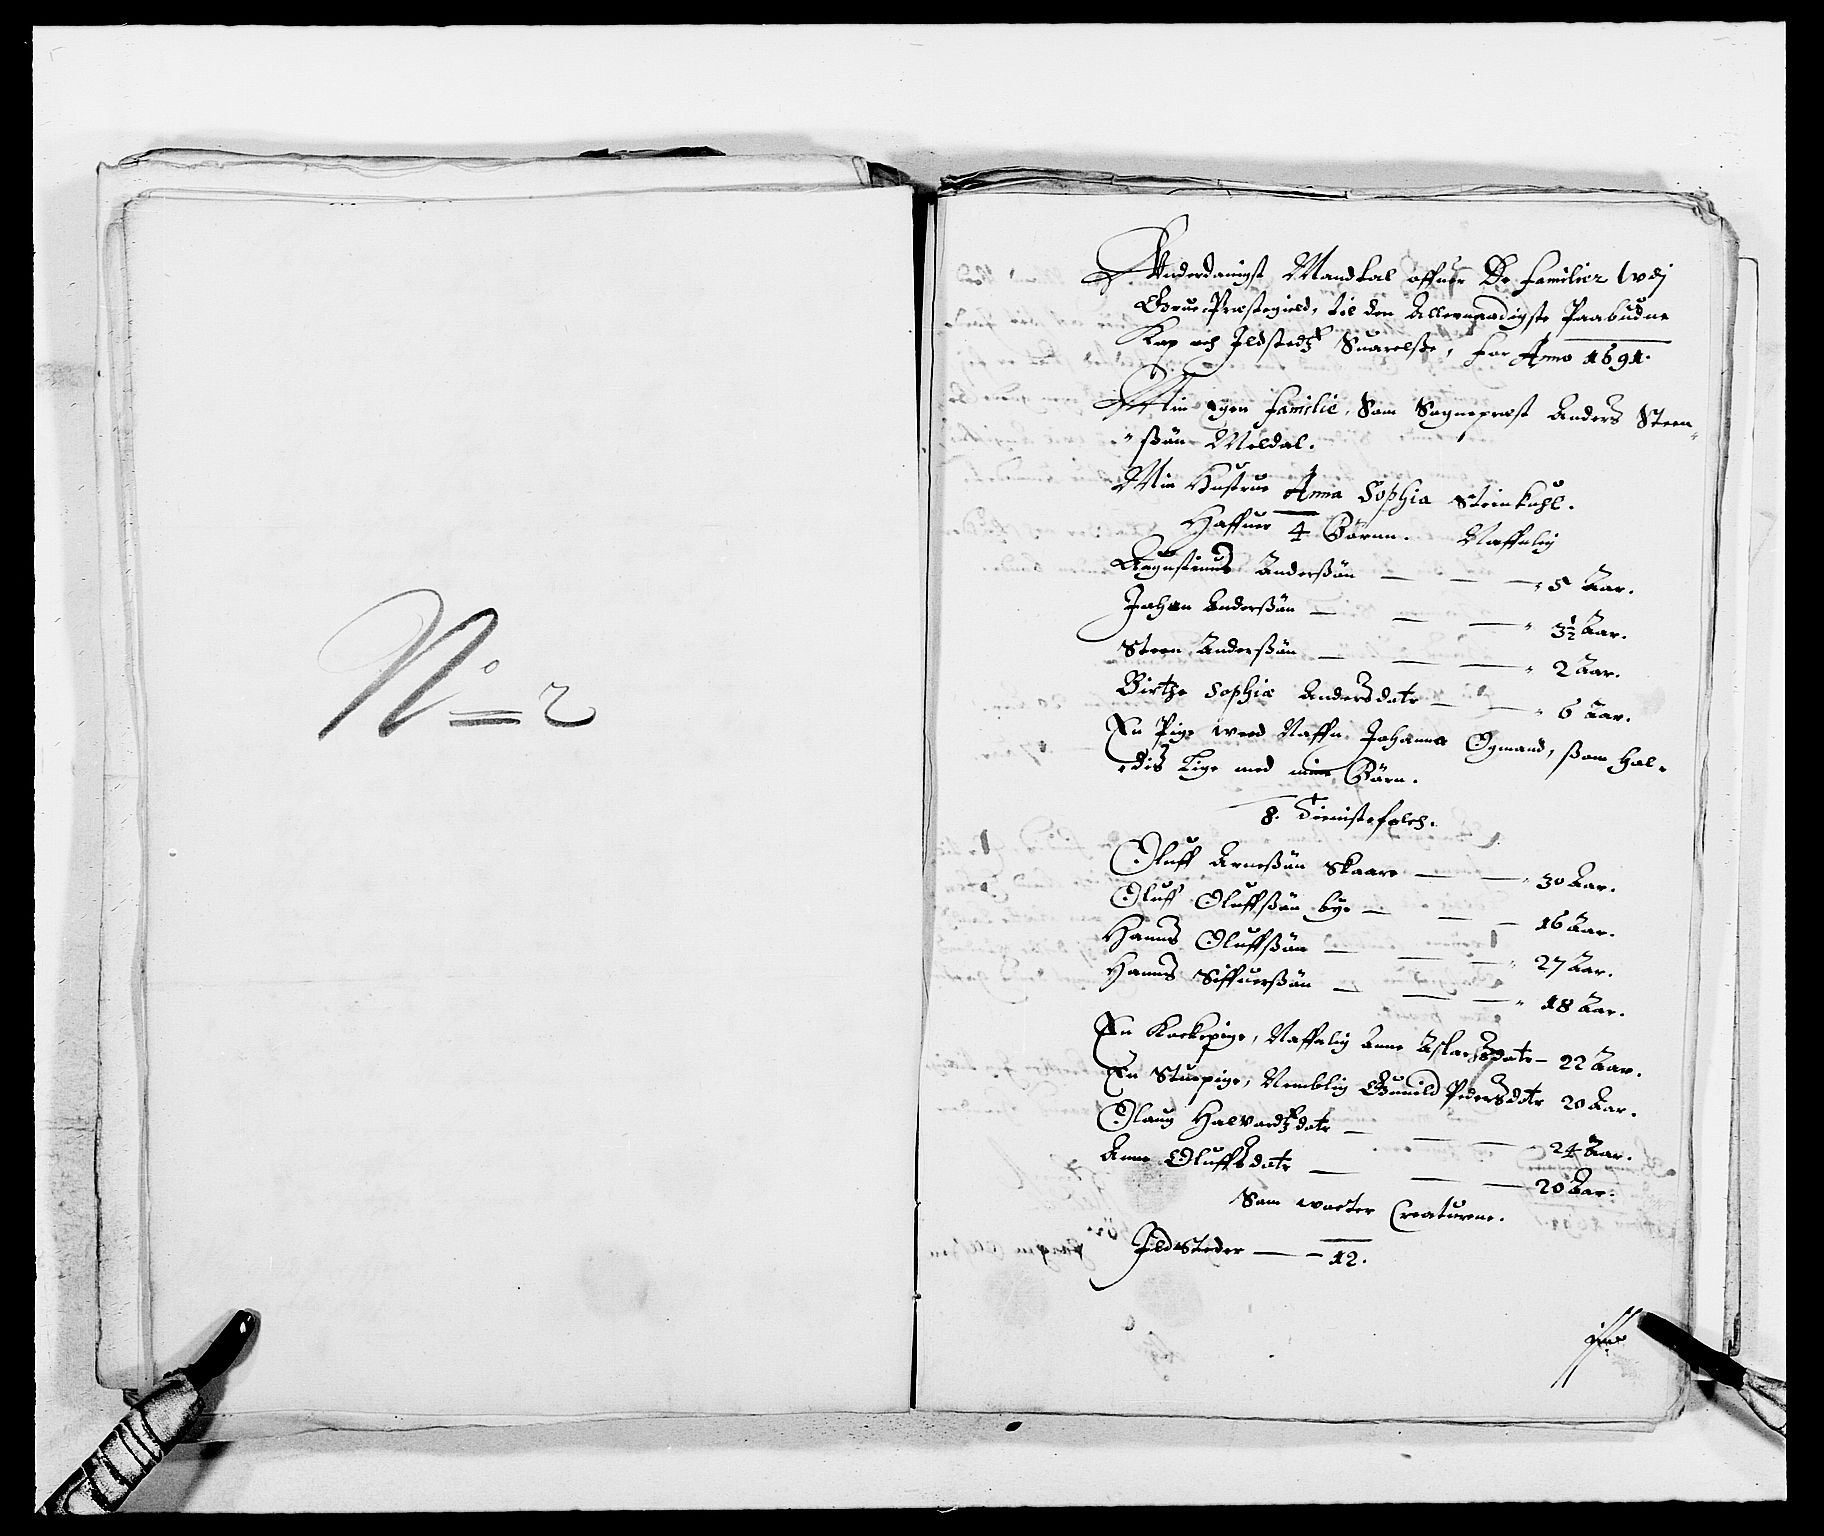 No 2
Underdanigst Mandtal offuer De Familier Udj
Grue Præstegield, til den Allernaadigste Paabudne
Kop och Jldstedtz Suarelsse, for Anno 1691.
Min egen Familie, Som Sogneprest Anders Steen-
"ßøn Meldal.
Min Hustrue Anna Sophia Steinkuhl.
Haffuer 4 Börnn. Naffnlig
Augustinus Anderßøn — — — " 5 Aar.
Johan Anderßøn — — — " 3½ Aar.
Steen Anderßøn — — — " 2 Aar.
Birthe Sophia Andersdatr — — " 6 Aar.
En Pige wed Naffn Johanna Ogmand, ßom Hol-
"dis Lige med mine Börn.
8. Tienistefolch.
Oluff Arneßøn Skaare — — " 30 Aar.
Oluff Oluffßøn bye — — — 16 Aar.
Hanns Oluffßøn — — — " 27 Aar.
Hanns Siffuerßøn — — — " 18 Aar.
En Kockepige, Naffnlig Anne datr — 22 Aar.
En Stuepige, Nemblig Gunild Pedersdatr 20 Aar.
Olaug Halvordtzdatr — — — 24 Aar.
Anne Oluffsdatr — — — 20 Aar.
Som wacter Creaturene.
JldSteder — — 12.